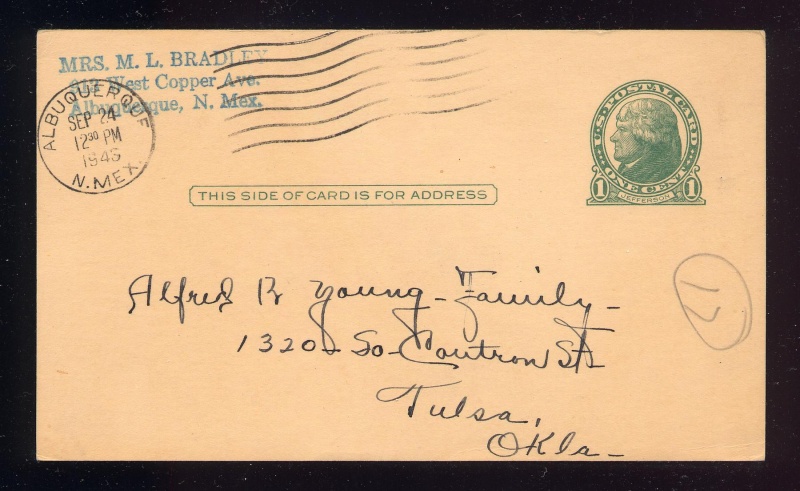 MRS. M. L. BRADLEY
West Copper Ave.
Albuquerque, N. Mex.
ALBUQUERQUE
SEP 24
12 30 PM
1945
N. MEX.
U.S. POSTAL CARD
1 ONE CENT 1
JEFFERSON
THIS SIDE OF CARD IS FOR ADDRESS
17
Alfred B Young - Family -
1320 - So - Cantron St
Tulsa,
Okla -